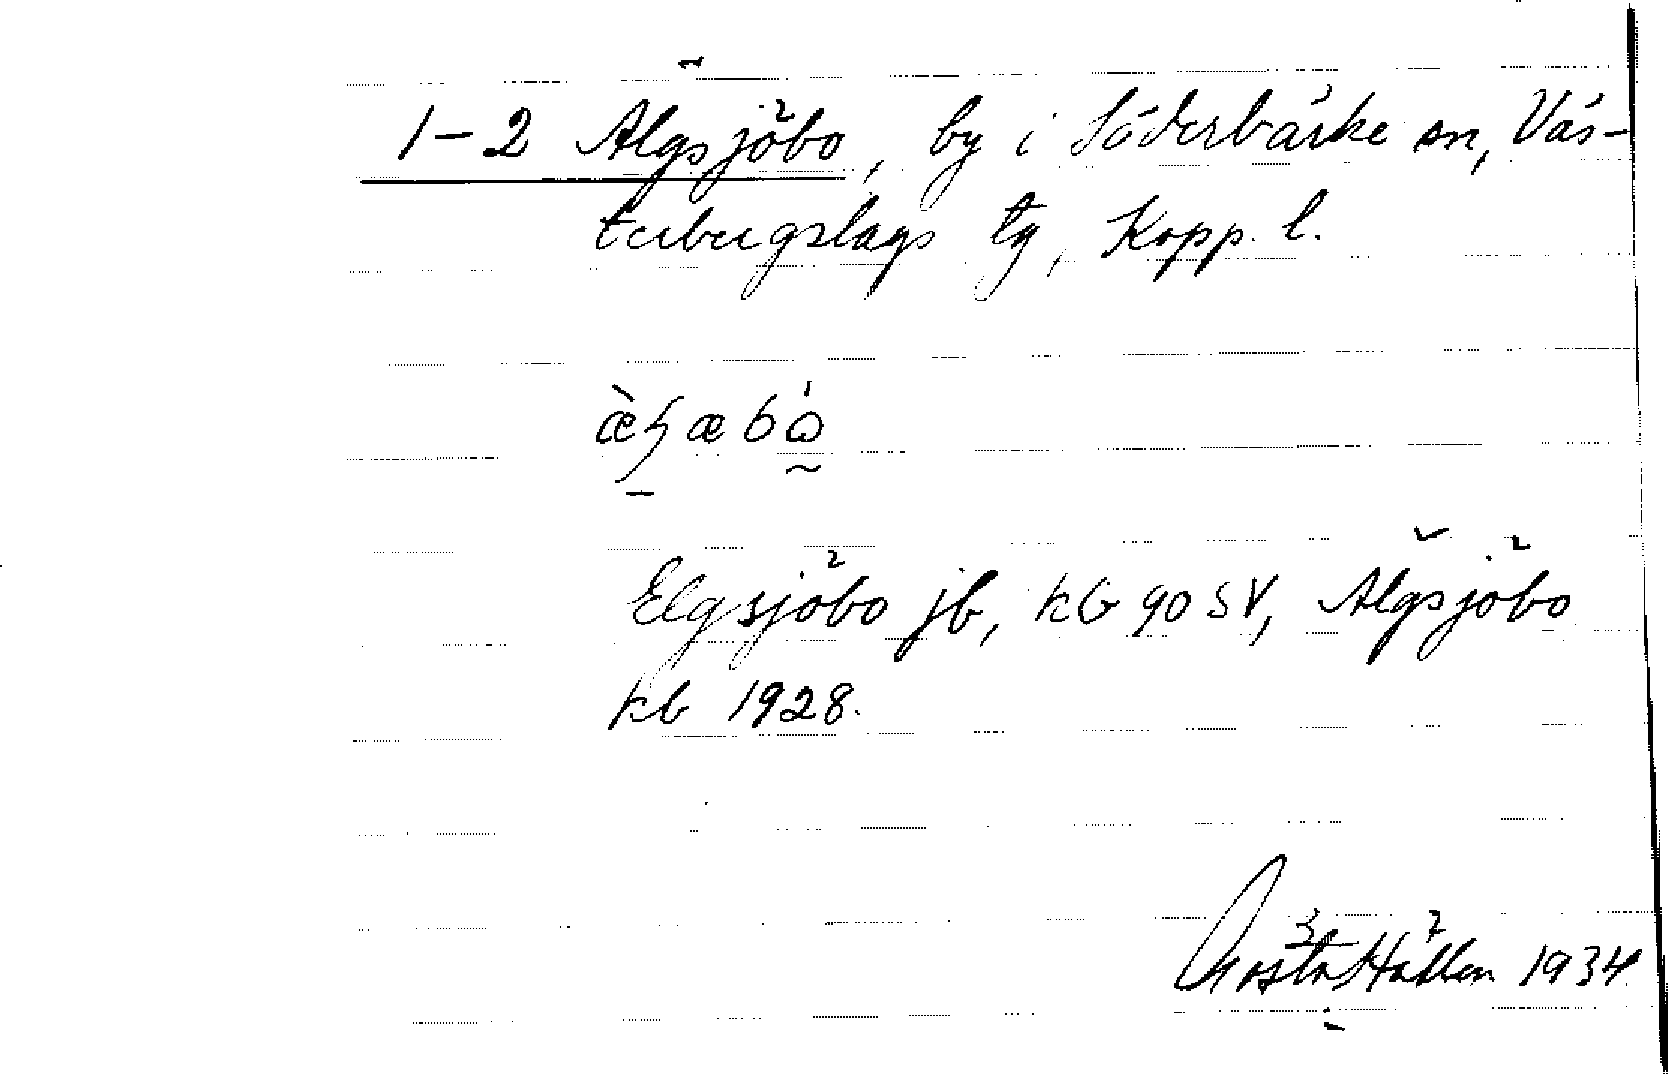 1-2 Älgsjöbo, by i Söderbärke sn, Väs-
terbergslags tg, Kopp. l.
Elgsjöbo jb, kb 90 SV, Älgsjöbo
kb 1928.
Gösta Hallen 1934